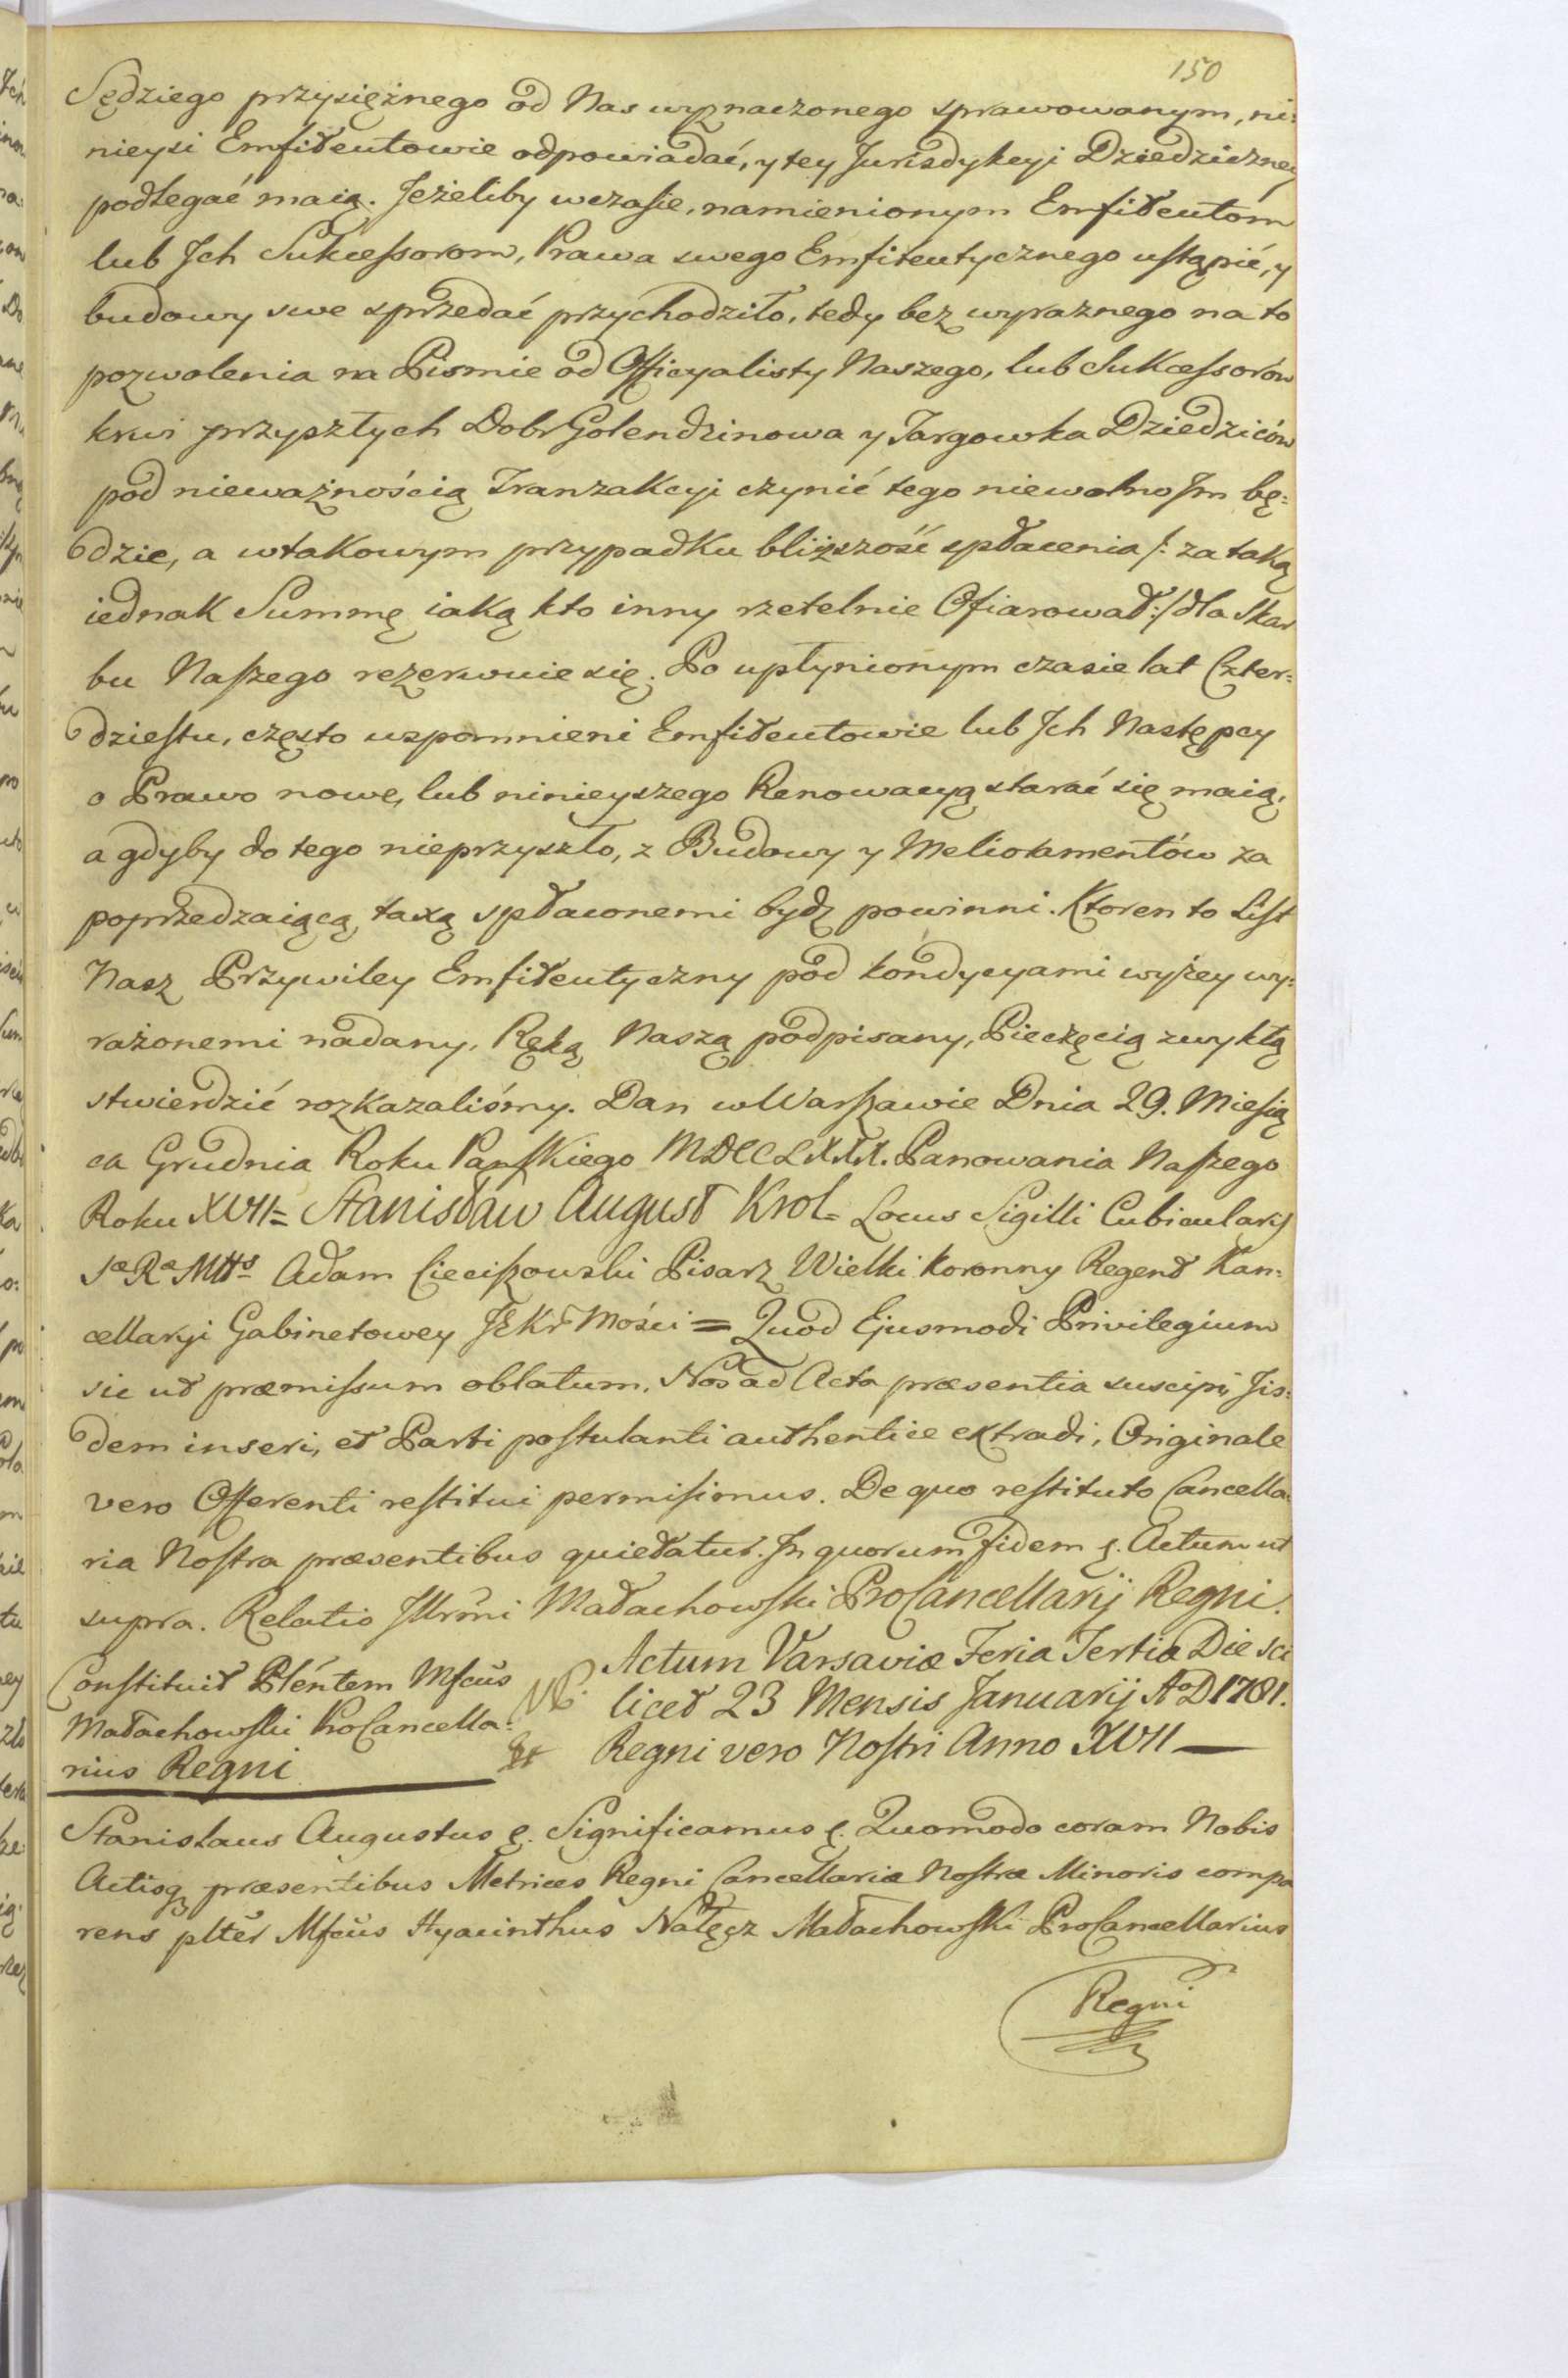 150
Sędziego przysiężnego od Nas wyznaczonego sprawowanym, ni:
nieysi Emfiteutowie odpowiadać, y tey Jurisdykcyi Dziedziczney
podlegać maią. Jeżeliby wczasie, namienionym Emfiteutom
lub Jch Sukcessorom, Prawa swego Emfiteutycznego ustąpić, y
budowy swe sprzedać przychodziło, tedy bez wyraznego na to
pozwolenia na Pismie od Officyalisty Naszego, lub Sukcessorów
krwi przyszłych Dobr Golendzinowa y Targowka Dziedziców
pod nieważnością Tranzakcyi czynić tego niewolno Jm bę:
dzie, a wtakowym przypadku bliższość spłacenia /: za taką
iednak Summę iaką kto inny rzetelnie Ofiarował :/ dla Skar
bu Naszego rezerwuie się. Po upłynionym czasie lat Czter:
dziestu, często uspomnieni Emfiteutowie lub Jch Następcy
o Prawo nowe, lub ninieyszego Renowacyą starać się maią,
a gdyby do tego nieprzyszło, z Budowy y Meliotamentów za
poprzedzaiącą taxą spłaconemi bydz powinni. Ktoren to List
Nasz Przywiley Emfiteutyczny pod kondycyami wyżey wy:
rażonemi nadany, Ręką Naszą podpisany, Pieczęcią zwykłą
stwierdzić rozkazaliśmy. Dan w Warszawie Dnia 29. Miesią
ca Grudnia Roku Pańskiego MDCCLXXX. Panowania Naszego
Roku XVII = Stanisław August Krol = Locus Sigilli Cubicularis
Sæ Ræ Mttis = Adam Cieciszowski Pisarz Wielki koronny Regent Kan:
cellaryi Gabinetowey JKr Mości = Quod Ejusmodi Privilegium
sic ut præmissum oblatum, Nos ad Acta præsentia suscipi, Jis:
dem inseri, et Parti postulanti authentice extradi, Originale
vero Offerenti restitui permisimus. De quo restituto Cancella:
ria Nostra præsentibus quietatur. Jn quorum fidem &. Actum ut
supra. Relatio Jllrmi Małachowski ProCancellarij Regni.
Constituit Plentem Mfcus
Małachowski ProCancella:
rius Regni
Actum Varsaviæ Feria Tertia Die sci
licet 23 Mensis Januarij A.D 1781.
Regni vero Nostri Anno XVII —
Stanislaus Augustus &. Significamus &. Quomodo coram Nobis
Actisq præsentibus Metrices Regni Cancellariæ Nostræ Minoris compa
rens plter Mfcus Hyacinthus Nałęcz Małachowski ProCancellarius
Regni